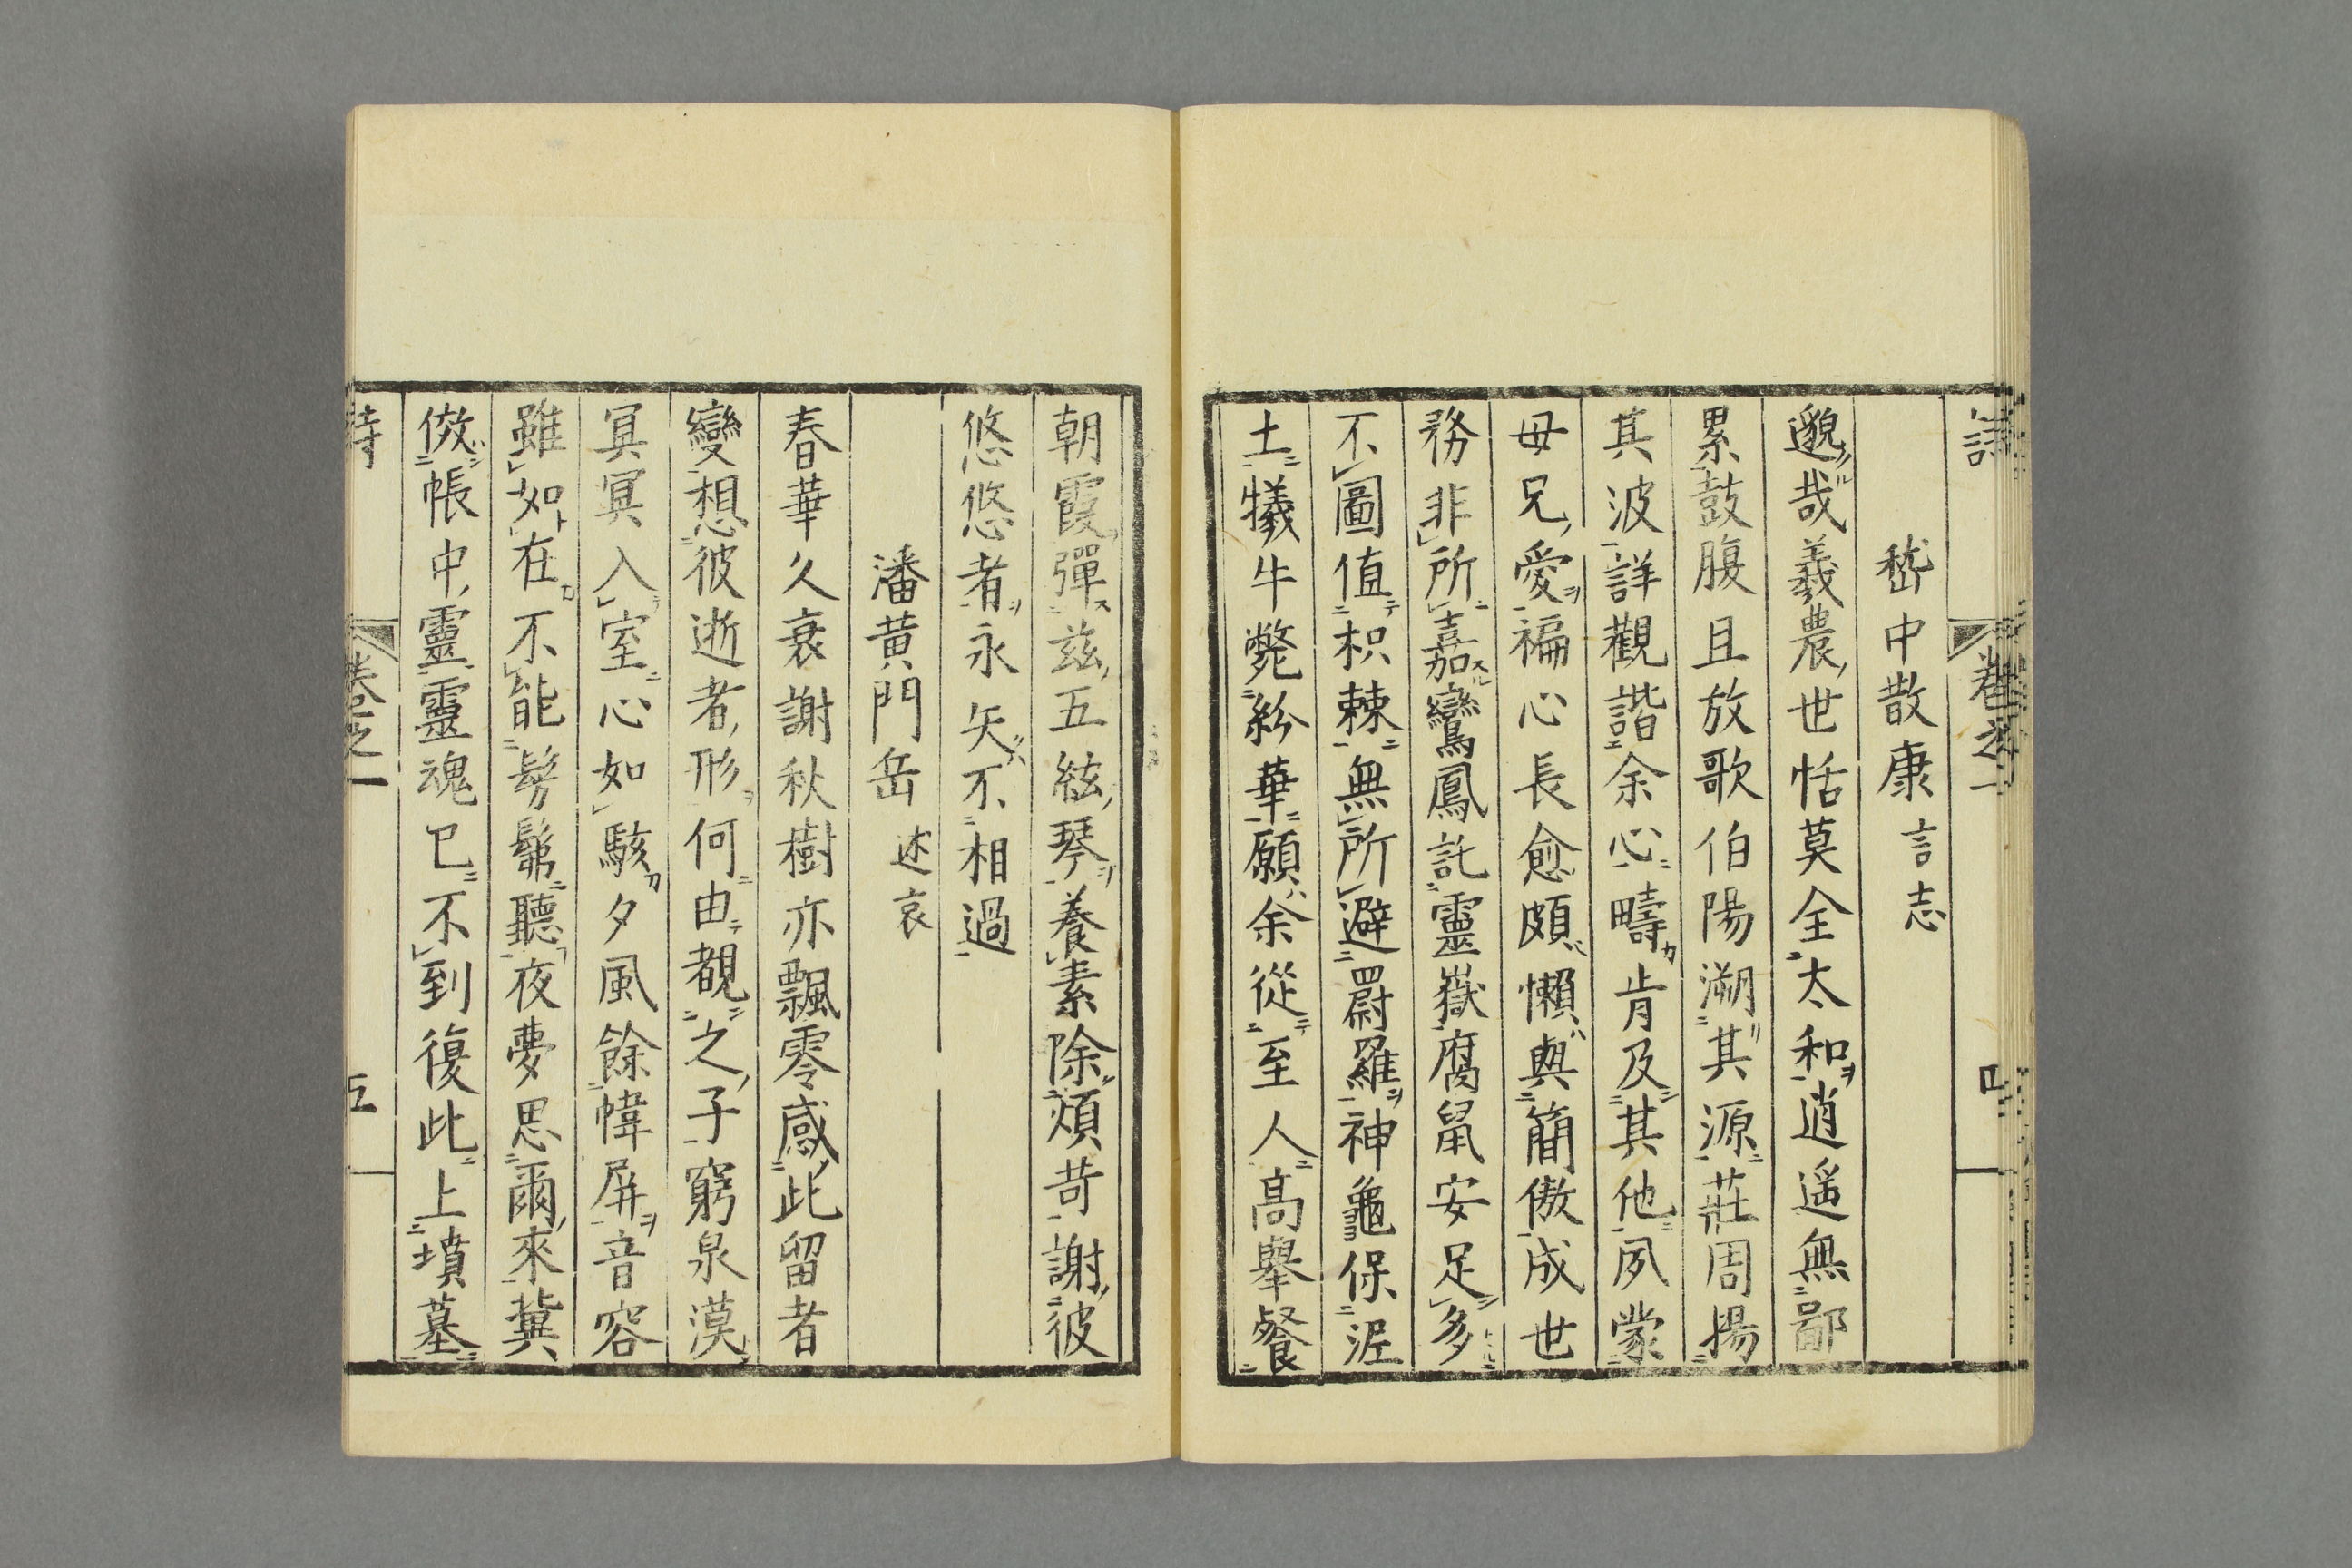 嵇中散康言志
邈哉羲農世恬莫全太和逍遥無鄙
累鼓腹且放歌伯陽溯其源莊周揚
其波詳觀諧余心疇肯及其他夙蒙
母兄愛褊心長愈頗懶與簡傲成世
務非所嘉鸞鳳託靈嶽腐鼠安足多
不圖值枳棘無所避罻羅神龜保泥
土犧牛斃紛華願余從至人高舉餐
朝霞彈茲五絃琴養素除煩苛謝彼
悠悠者永矢不相過
潘黄門岳述哀
春華久衰謝秋樹亦飄零感此留者
變想彼逝者形何由覩之子窮泉漠
冥冥入室心如駭夕風餘幃屏音容
雖如在不能髣髴聽夜夢思爾來冀
倣帳中靈靈魂已不到復此上墳墓
詩 卷之一 五